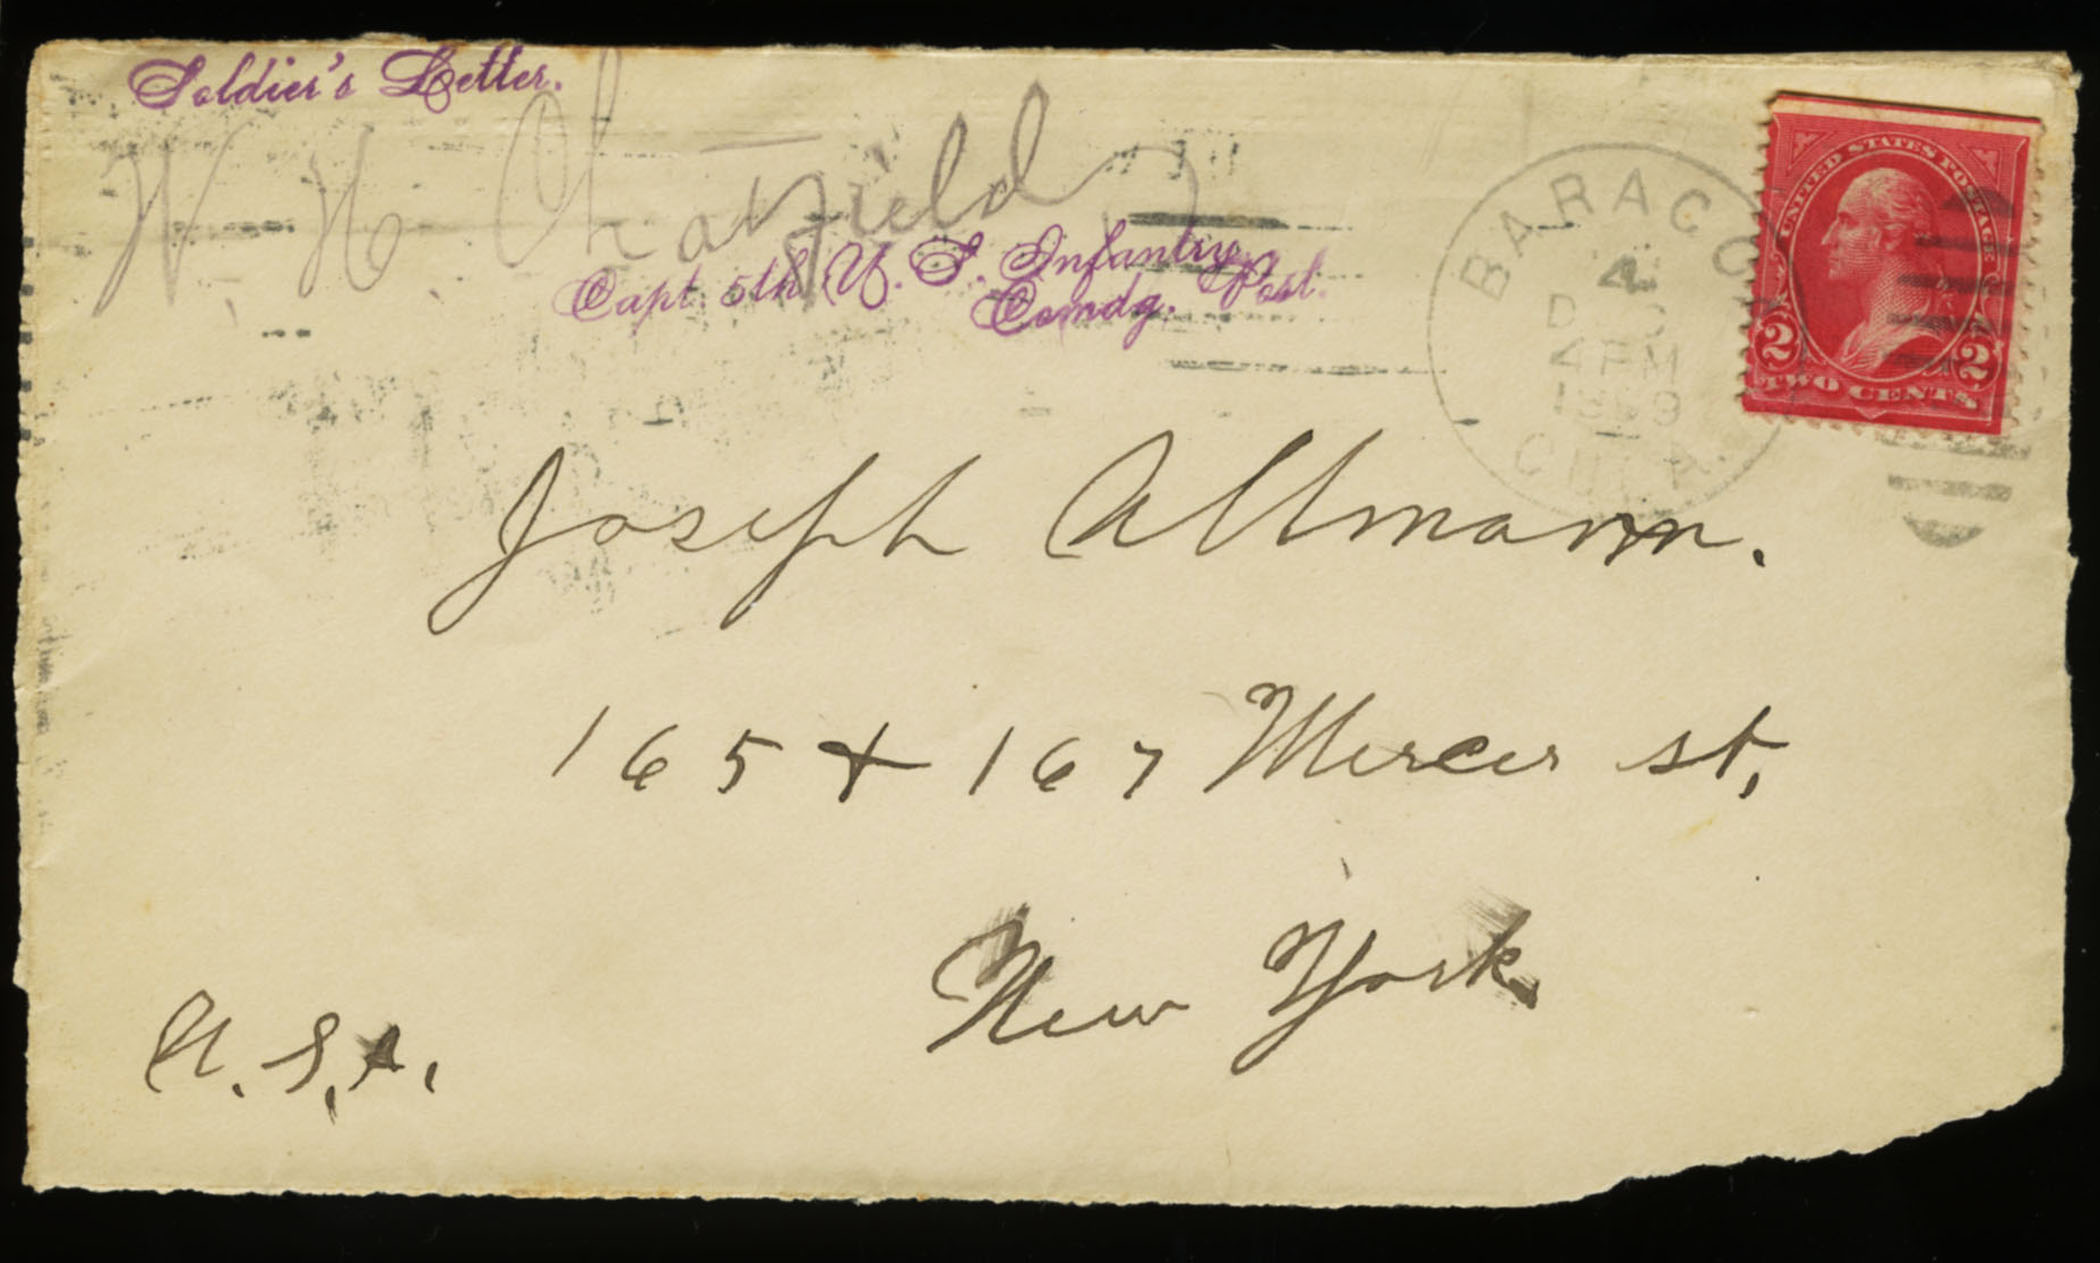 Soldier's Letter.
W. H. Chatfield
Capt 5th U. S. Infantry,
Comdg. Post.
BARACOA
4
4 PM
CUBA.
UNITED STATES POSTAGE
2 2
TWO CENTS
Joseph Altmann.
165 + 167 Mercer st,
New York
U. S. A.